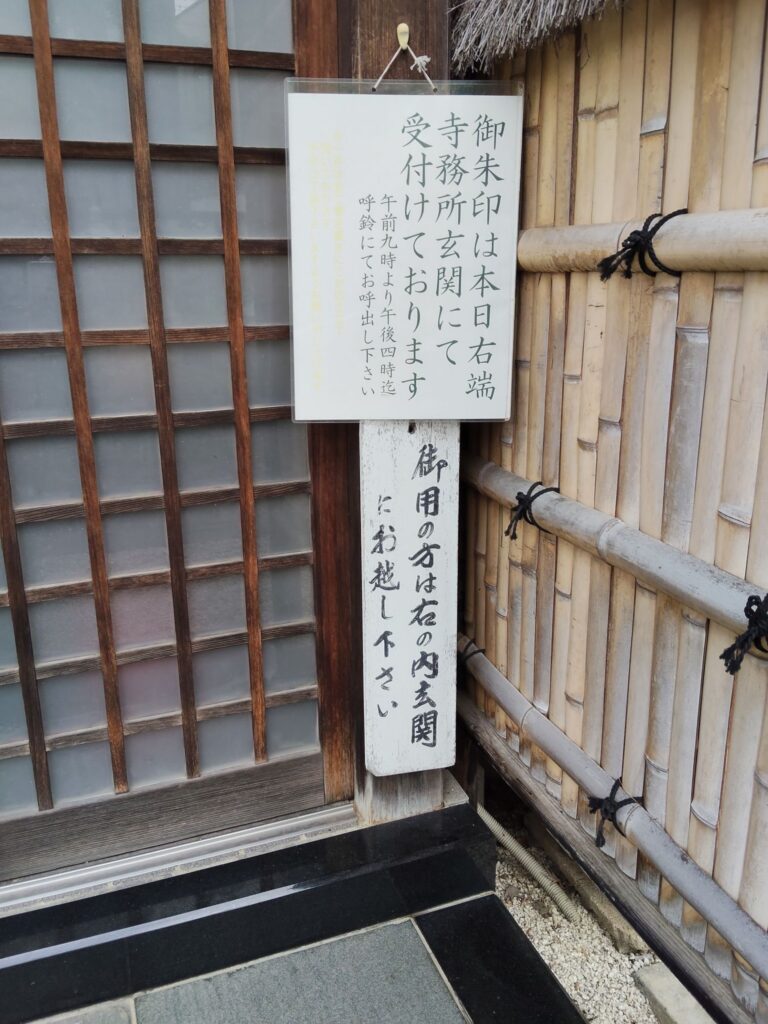 御朱印は本日右端
寺務所玄関にて
受付けております
午前九時より午後四時迄
呼鈴にてお呼出し下さい
御用の方は右の内玄関
にお越し下さい